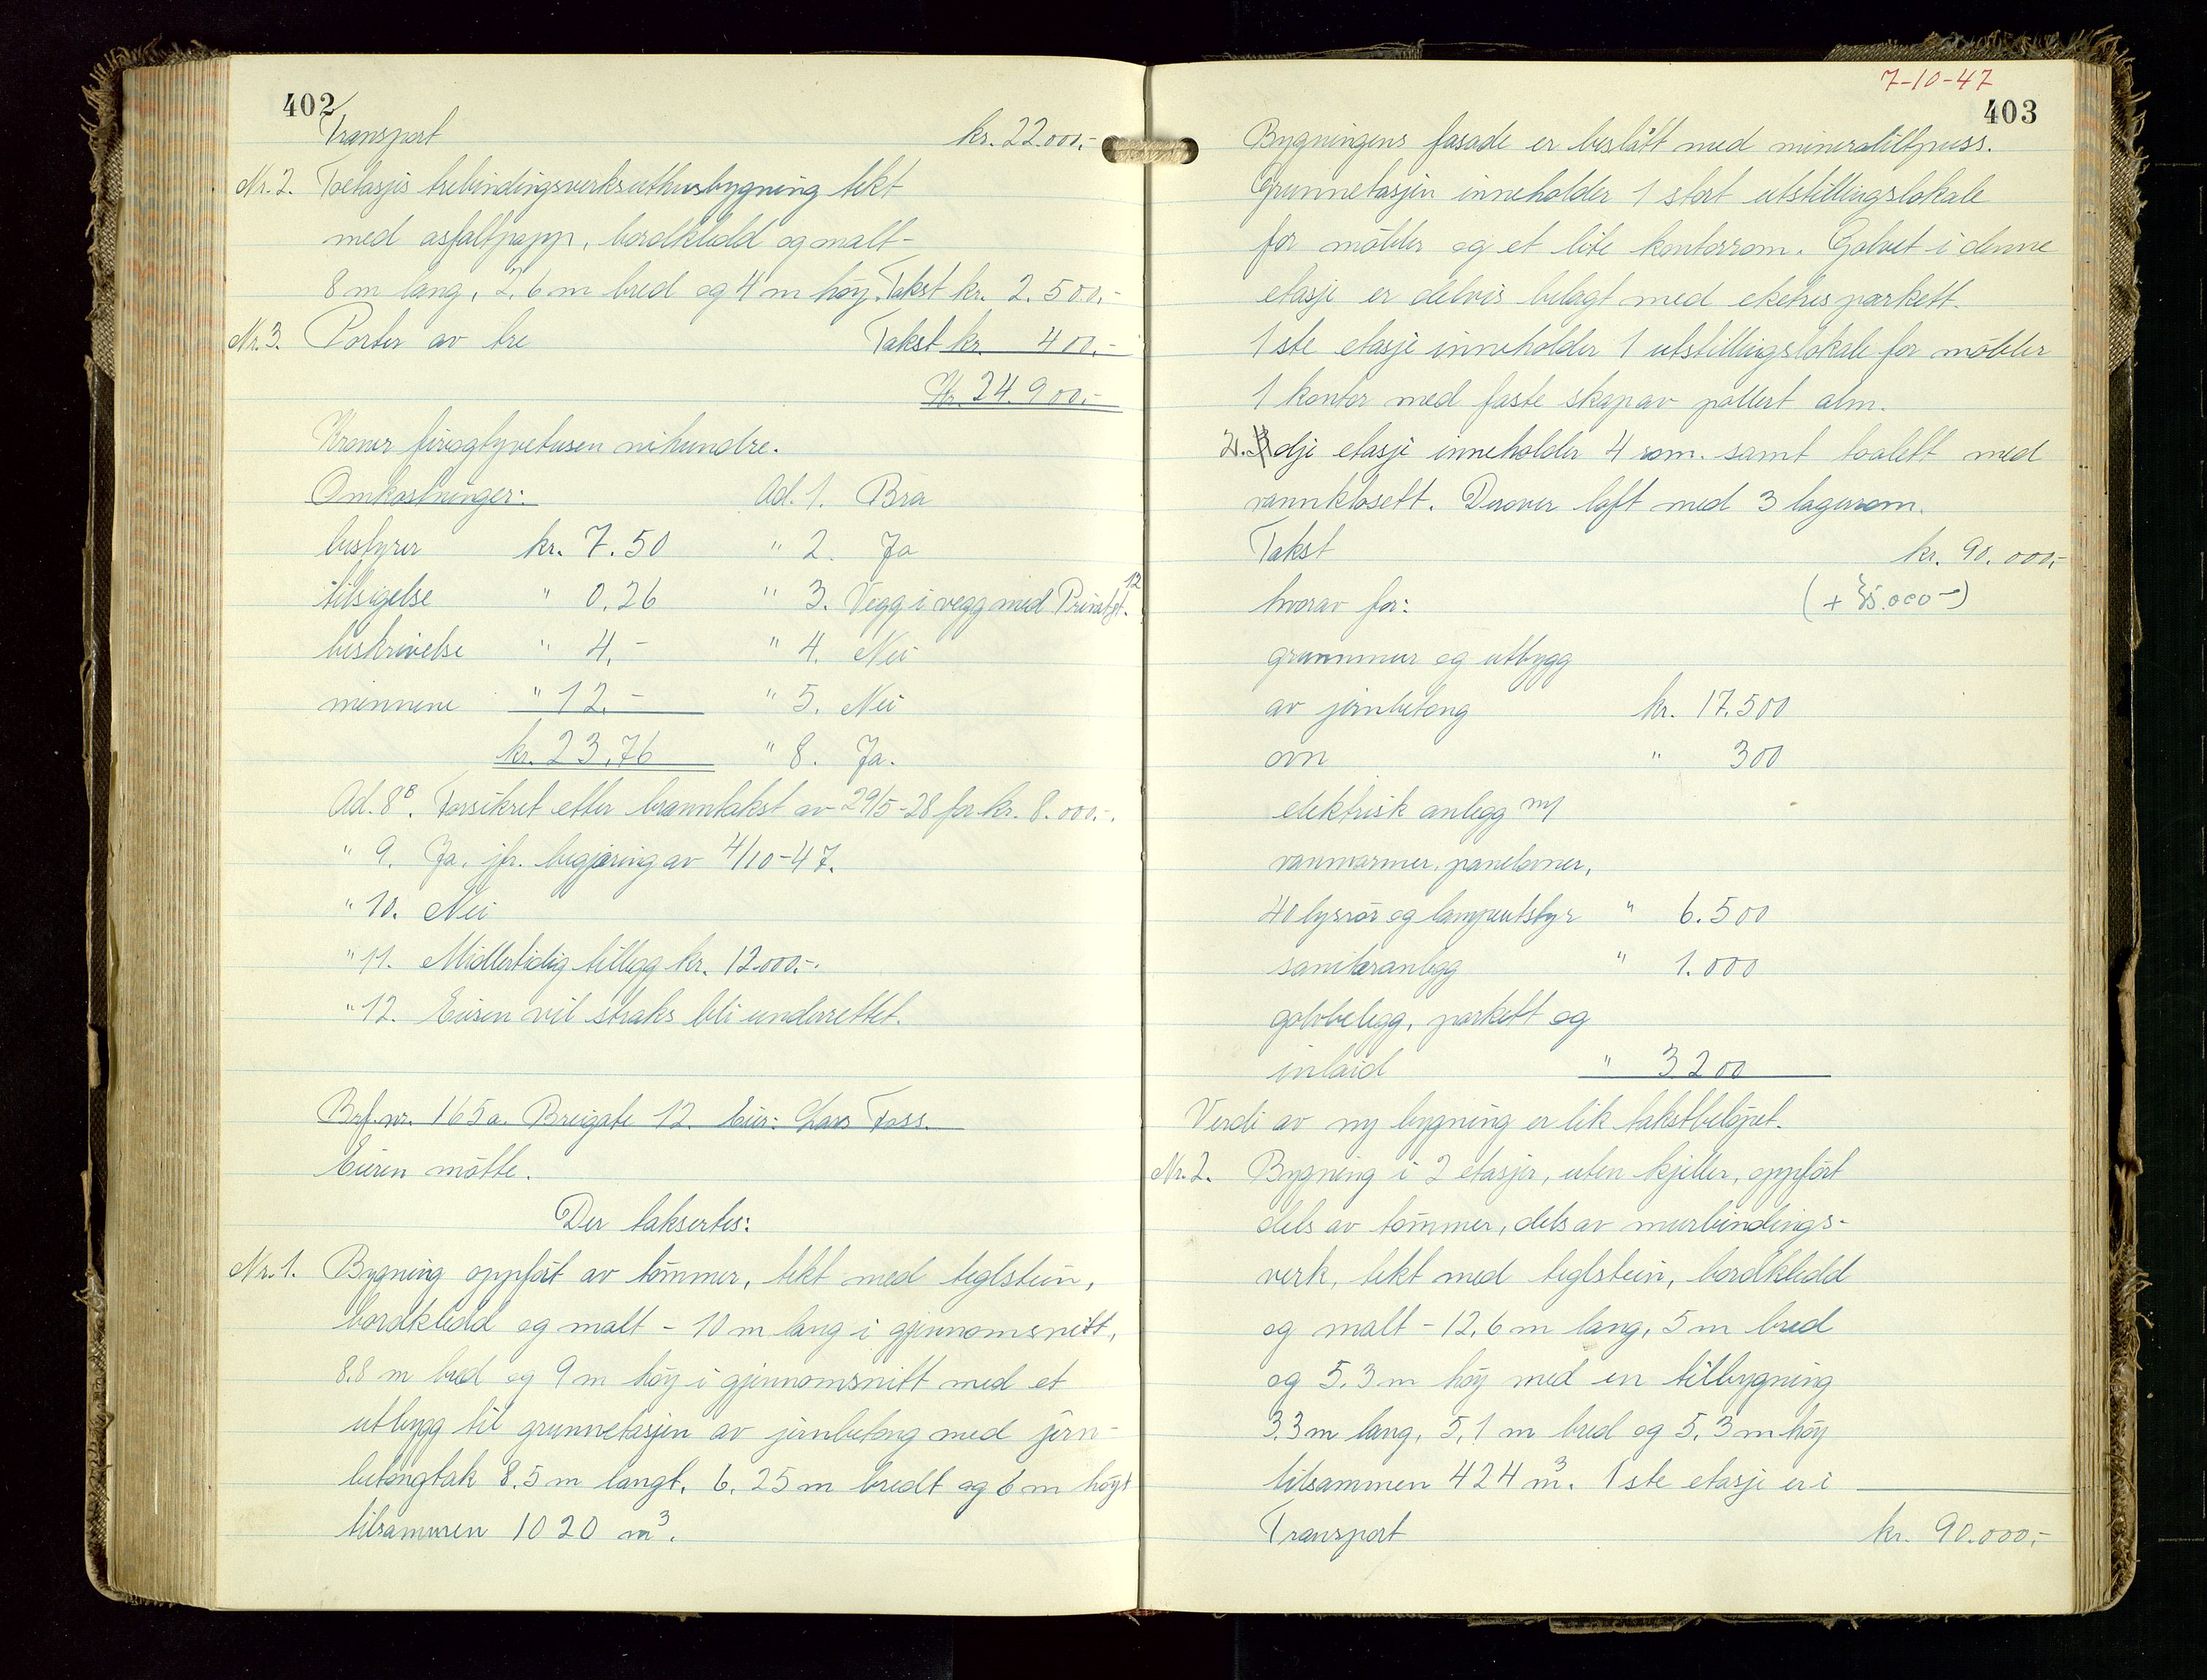 402
Transport kr. 22.000.-
Nr. 2. Toetasjes trebindingsverksuthusbygning tekt
med asfaltpapp, bordkledd og malt -
8 m lang, 2,6 m bred og 4 m høy. Takst kr. 2.500.-
Nr. 3. Porter av tre Takst kr. 400.-
Kr. 24.900.-
Kroner fireogtyvetusen nihundre.
Omkostninger: Ad. 1. Bra
bestyrer kr. 7.50 " 2. Ja
tilsigelse " 0.26 " 3. Vegg i vegg med Privatgt. 12
beskrivelse " 4.- " 4. Nei
mennene " 12.- " 5. Nei
kr. 23,76 " 8. Ja.
Ad. 8B. Forsikret etter branntakst av 29/5-28 for kr. 8.000.-.
" 9. Ja, jfr. begjæring av 4/10-47.
" 10. Nei
" 11. Midlertidig tillegg kr. 12.000.-.
" 12. Eieren vil straks bli underrettet.
Brf. nr. 165a. Breigate 12. Eier: Lars Foss.
Eieren møtte.
Der taksertes:
Nr. 1. Bygning oppført av tømmer, tekt med teglstein,
bordkledd og malt - 10 m lang i gjennomsnitt,
8.8 m bred og 9 m høy i gjennomsnitt med et
utbygg til grunnetasjen av jernbetong med jern-
betongtak 8.5 m langt, 6.25 m bredt og 6 m høgt
tilsammen 1020 m³.
7-10-47
403
Bygningens fasade er beslått med mineralittpuss.
Grunnetasjen inneholder 1 stort utstillingslokale
for møbler og et lite kontorrom. Golvet i denne
etasje er delvis belagt med eketres parkett.
1ste etasje inneholder 1 utstillingslokale for møbler
1 kontor med faste skap av polert alm.
2. dje etasje inneholder 4 rom. samt toalett med
vannklosett. Derover loft med 3 lagerrom.
Takst kr. 90.000,-
hvorav for: (+ 35.000-)
grunnmur og utbygg
av jernbetong kr. 17.500
ovn " 300
elektrisk anlegg m/
vannvarmer, panelovner,
40 lysrør og lampeutstyr " 6.500
sanitæranlegg " 1.000
golvbelegg, parkett og
inlaid " 3200
Verdi av ny bygning er lik takstbeløpet.
Nr. 2. Bygning i 2 etasjer, uten kjeller, oppført
dels av tømmer, dels av murbindings-
verk, tekt med teglstein, bordkledd
og malt - 12,6 m lang, 5 m bred
og 5.3 m høy med en tilbygning
3.3 m lang, 5,1 m bred og 5,3 m høy
tilsammen 424 m³. 1ste etasje er i
Transport kr. 90.000,-